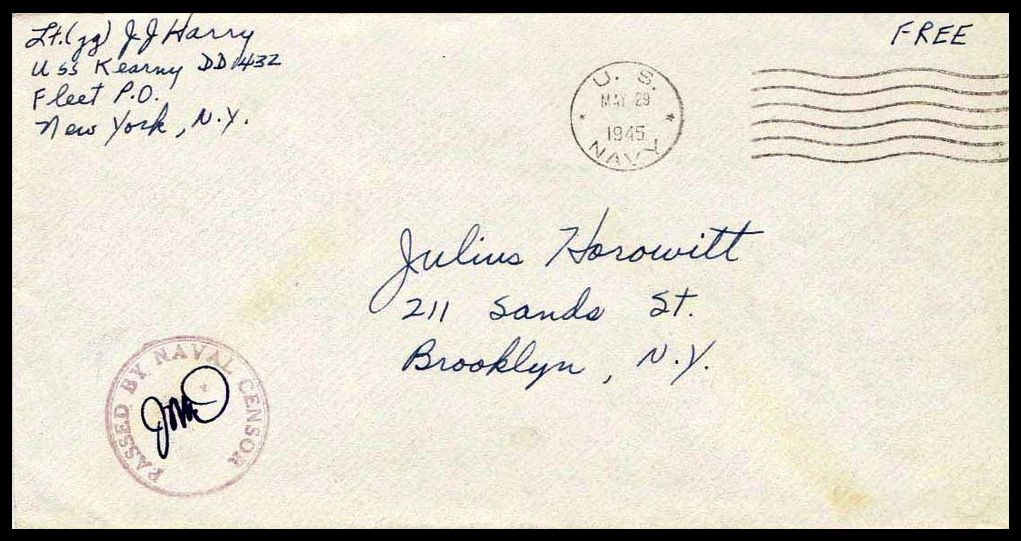 Lt.(jg) JJ Harry
USS Kearny DD 432
Fleet P.O.
New York, N.Y.
FREE
U. S.
MAY 29
1945
NAVY
Julius Horowitt
211 Sands St.
Brooklyn, N.Y.
PASSED BY NAVAL CENSOR